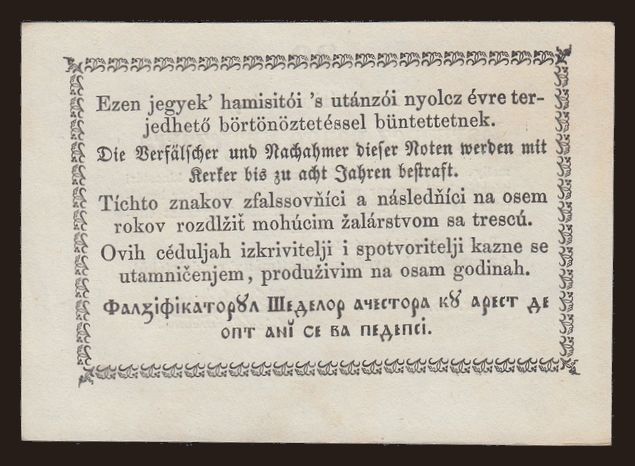 Ezen jegyek’ hamisitói ’s utánzói nyolcz évre ter-
jedhető börtönöztetéssel büntettetnek.
Die Verfälscher und Nachahmer dieser Noten werden mit
Kerker bis zu acht Jahren bestraft.
Tíchto znakov zfalssovňíci a následňíci na osem
rokov rozdlžiť mohúcim žalárstvom sa trescú.
Ovih céduljah izkrivitelji i spotvoritelji kazne se
utamničenjem, produživim na osam godinah.
Фалзіфікаторꙋл Шеделор ачестора кꙋ арест де
опт анĭ се ва педепсі.